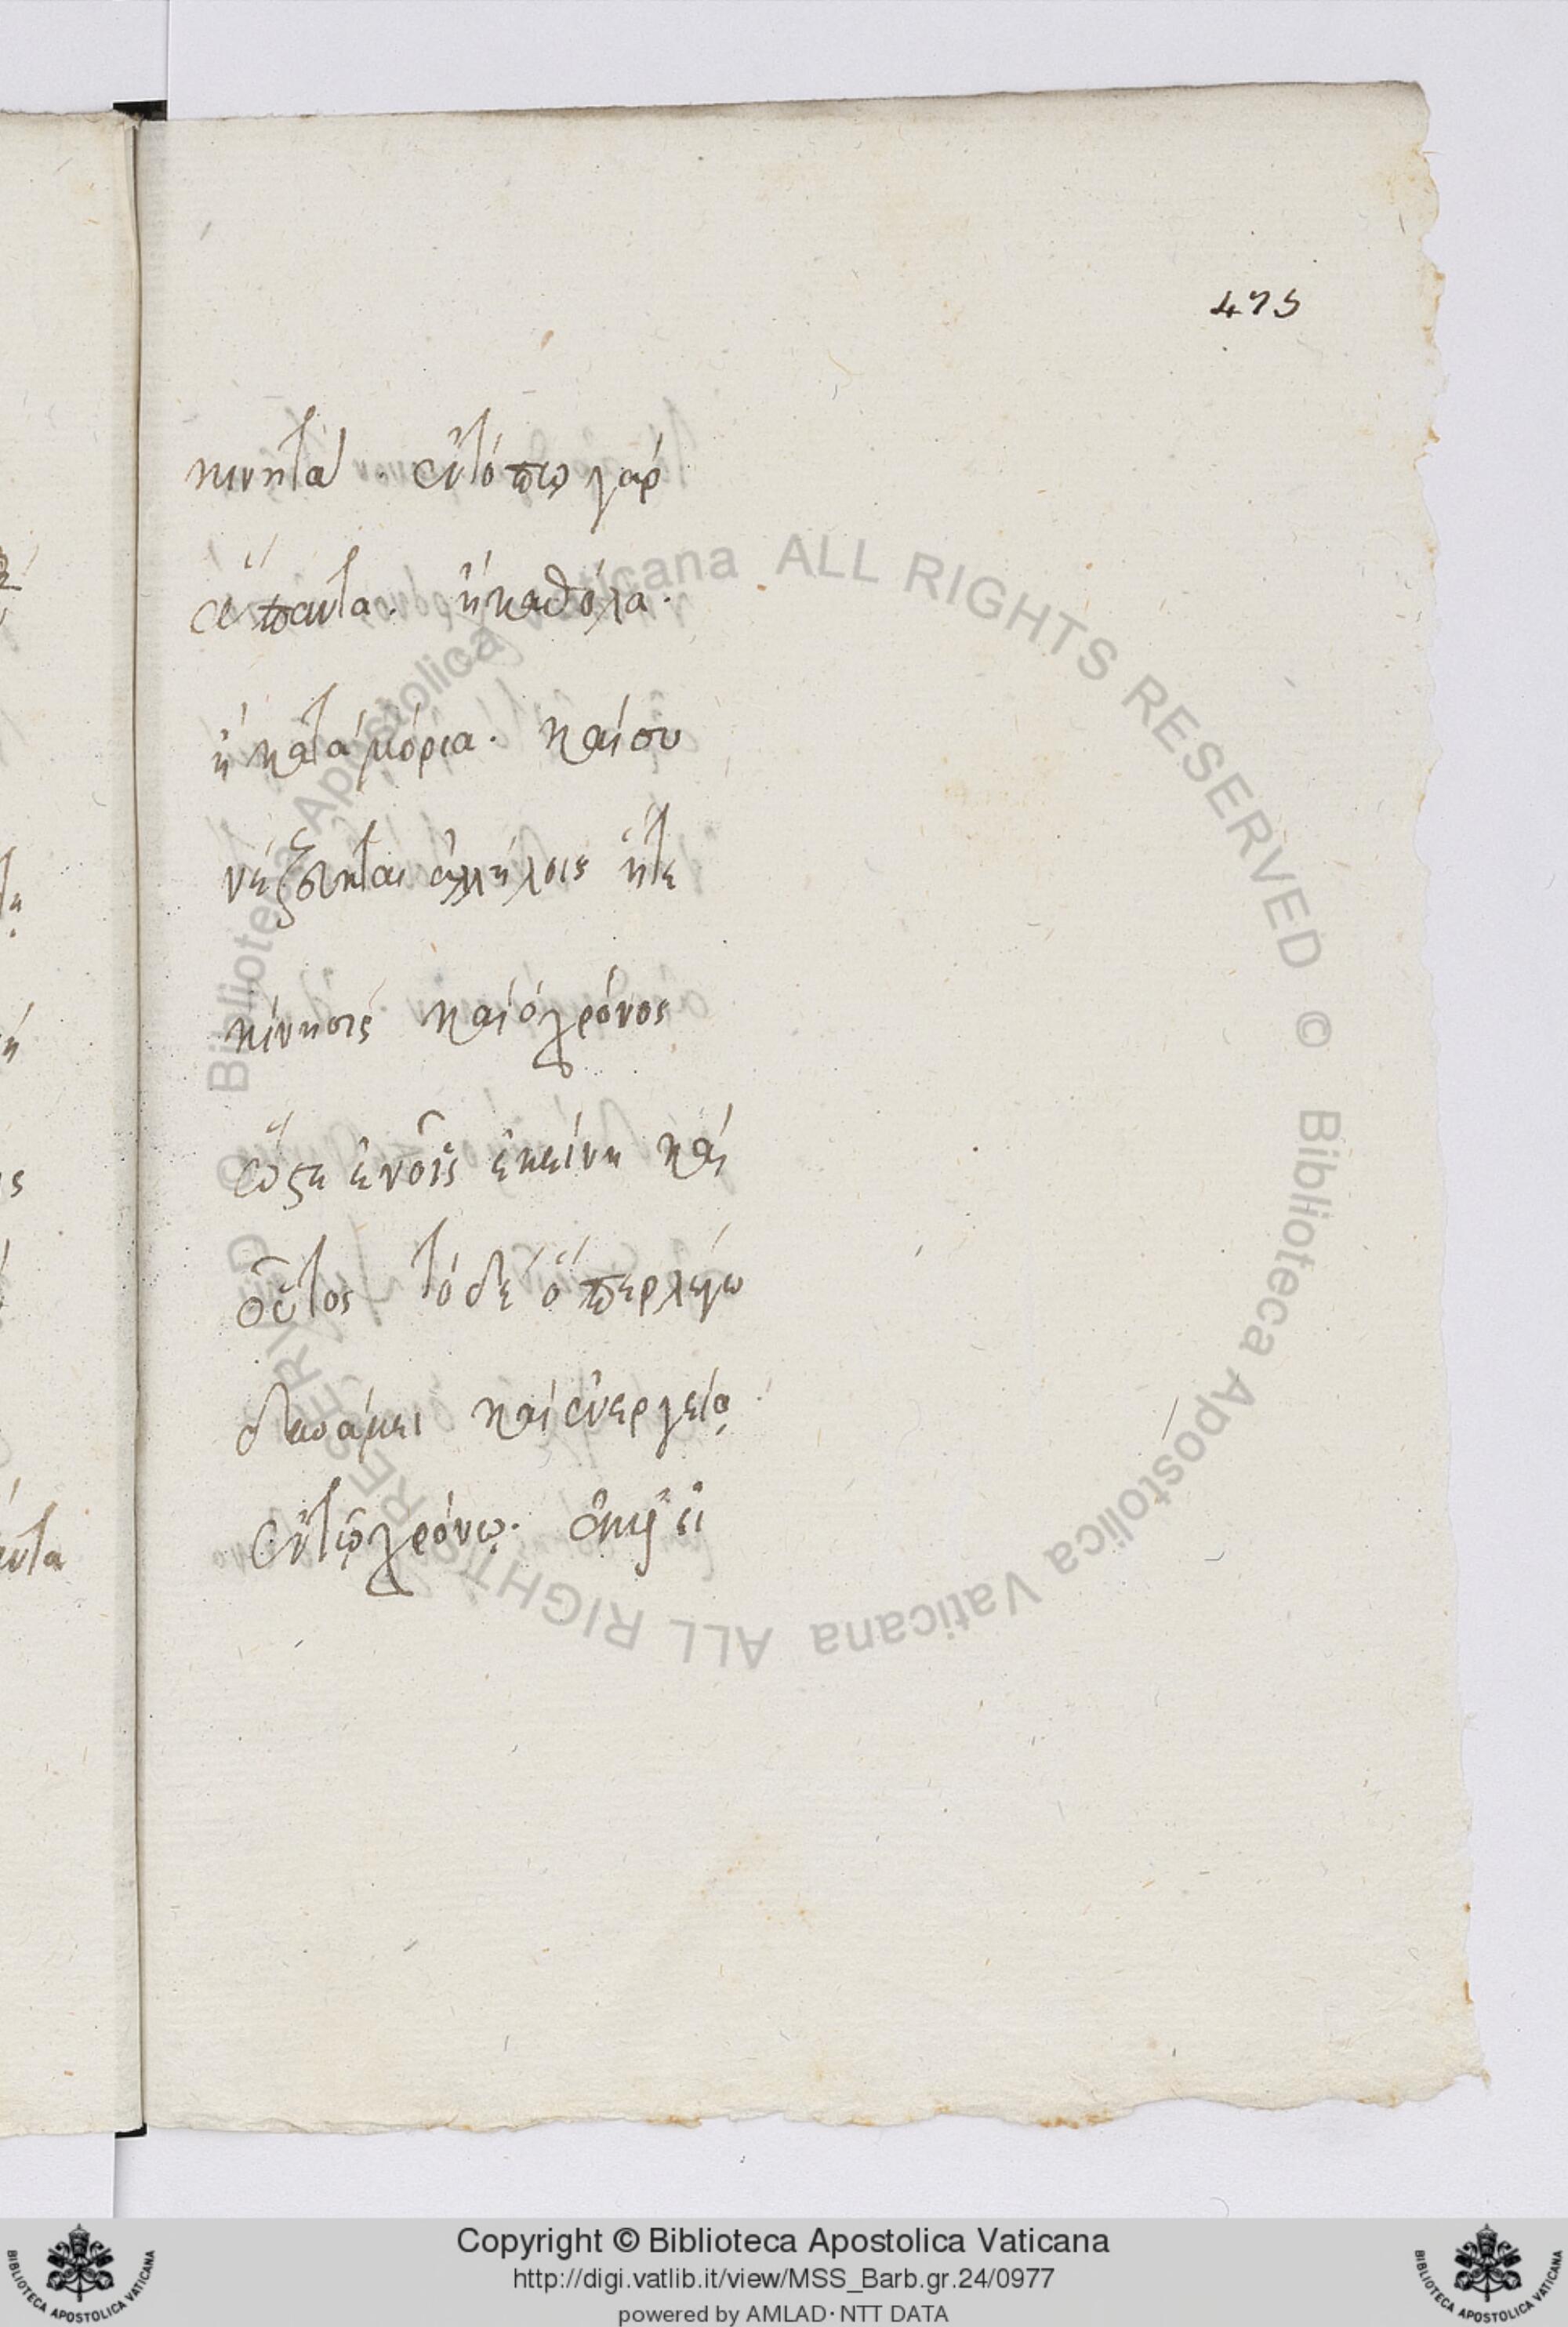 475
κινητά. ἐν τόπῳ γὰρ
ἅπαντα. ἢ καθόλα.
ἢ κατὰ μόρια. καὶ συ
νέζευκται ἀλλήλοις ἥτε
κίνησις καὶ ὁ χρόνος
ὥστε ἐν οἷς ἐκείνη καὶ
οὗτος τὸ δὲ ὅπερ λέγω
δυνάμει καὶ ἐνεργείᾳ
ἐν τῷ χρόνῳ.
Biblioteca Apostolica Vaticana ALL RIGHTS RESERVED ©
Biblioteca Apostolica Vaticana ALL RIGHTS RESERVED ©
Copyright © Biblioteca Apostolica Vaticana
http://digi.vatlib.it/view/MSS_Barb.gr.24/0977
powered by AMLAD · NTT DATA
BIBLIOTECA APOSTOLICA VATICANA
BIBLIOTECA APOSTOLICA VATICANA